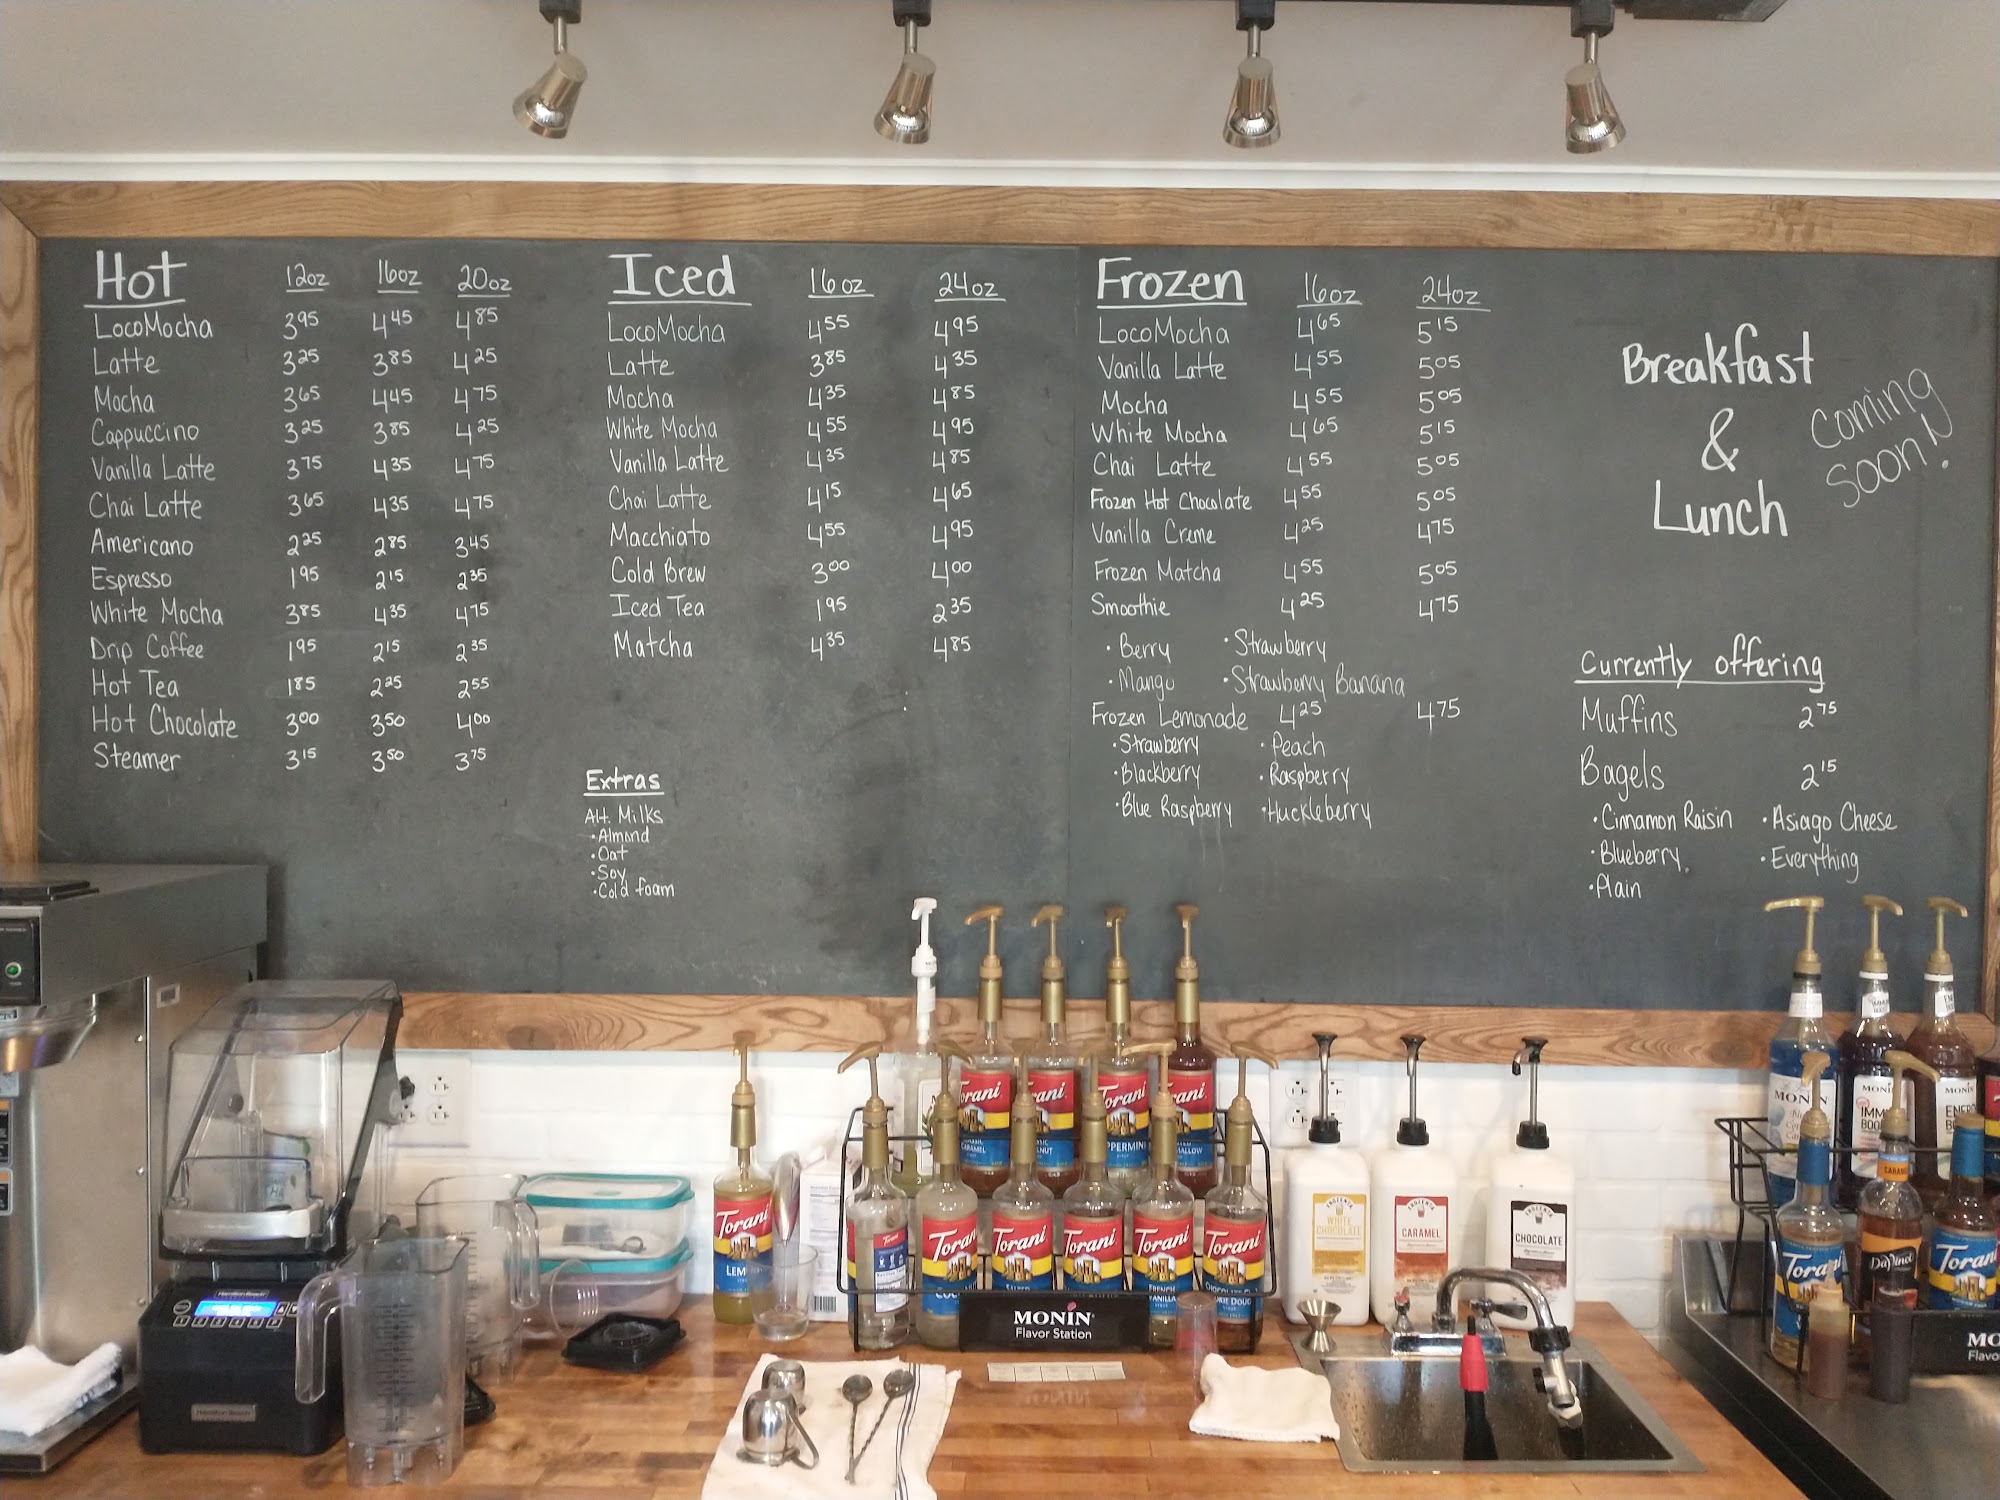 Hot 12oz 16oz 20oz
LocoMocha 3.95 4.45 4.85
Latte 3.25 3.85 4.25
Mocha 3.65 4.45 4.75
Cappuccino 3.25 3.85 4.25
Vanilla Latte 3.75 4.35 4.75
Chai Latte 3.65 4.35 4.75
Americano 2.25 2.85 3.45
Espresso 1.95 2.15 2.35
White Mocha 3.85 4.35 4.75
Drip Coffee 1.95 2.15 2.35
Hot Tea 1.85 2.25 2.55
Hot Chocolate 3.00 3.50 4.00
Steamer 3.15 3.50 3.75
Iced 16oz 24oz
LocoMocha 4.55 4.95
Latte 3.85 4.35
Mocha 4.35 4.85
White Mocha 4.55 4.95
Vanilla Latte 4.35 4.85
Chai Latte 4.15 4.65
Macchiato 4.55 4.95
Cold Brew 3.00 4.00
Iced Tea 1.95 2.35
Matcha 4.35 4.85
Extras
Alt. Milks
• Almond
• Oat
• Soy
• Cold foam
Frozen 16oz 24oz
LocoMocha 4.65 5.15
Vanilla Latte 4.55 5.05
Mocha 4.55 5.05
White Mocha 4.65 5.15
Chai Latte 4.55 5.05
Frozen Hot Chocolate 4.55 5.05
Vanilla Creme 4.25 4.75
Frozen Matcha 4.55 5.05
Smoothie 4.25 4.75
• Berry • Strawberry
• Mango • Strawberry Banana
Frozen Lemonade 4.25 4.75
• Strawberry • Peach
• Blackberry • Raspberry
• Blue Raspberry • Huckleberry
Breakfast
&
Lunch
Coming
Soon!
Currently offering
Muffins 2.75
Bagels 2.15
• Cinnamon Raisin • Asiago Cheese
• Blueberry • Everything
• Plain
Torani
Torani
Torani
Torani
Torani
Torani
FRENCH
VANILLA
MONIN
Flavor Station
WHITE
CHOCOLATE
CARAMEL
CHOCOLATE
MONIN
MONIN
MONIN
DaVinci
Torani
Hamilton Beach